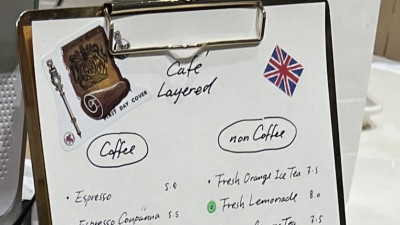 FIRST DAY COVER
Café
Layered
Coffee
non Coffee
• Espresso 5.0
Espresso Conpanna 5.5
• Fresh Orange Ice Tea 7.5
Fresh Lemonade 8.0
Tea 7.5